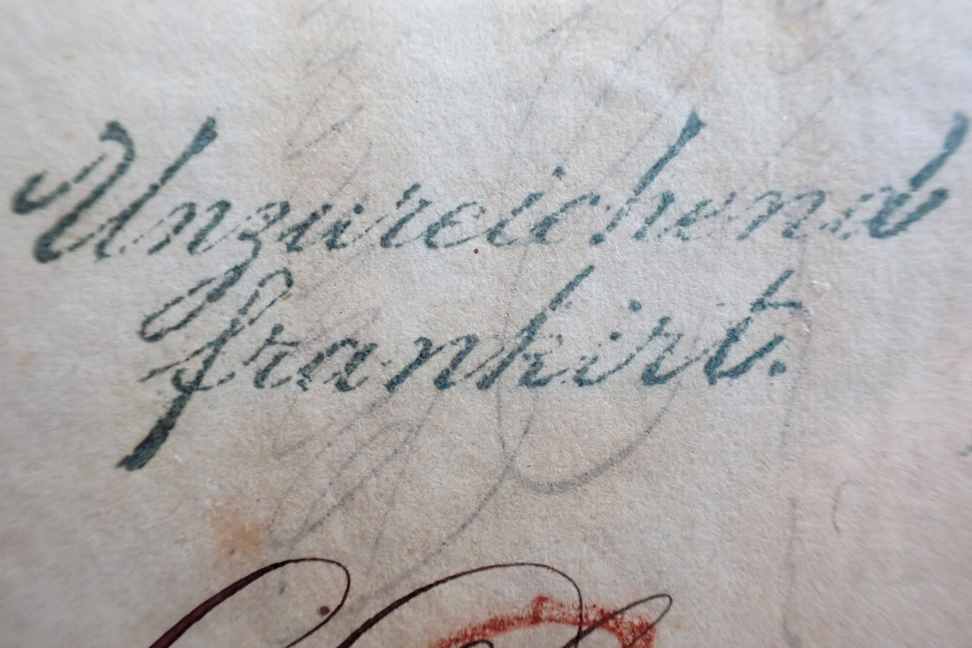 Unzureichend
frankirt.